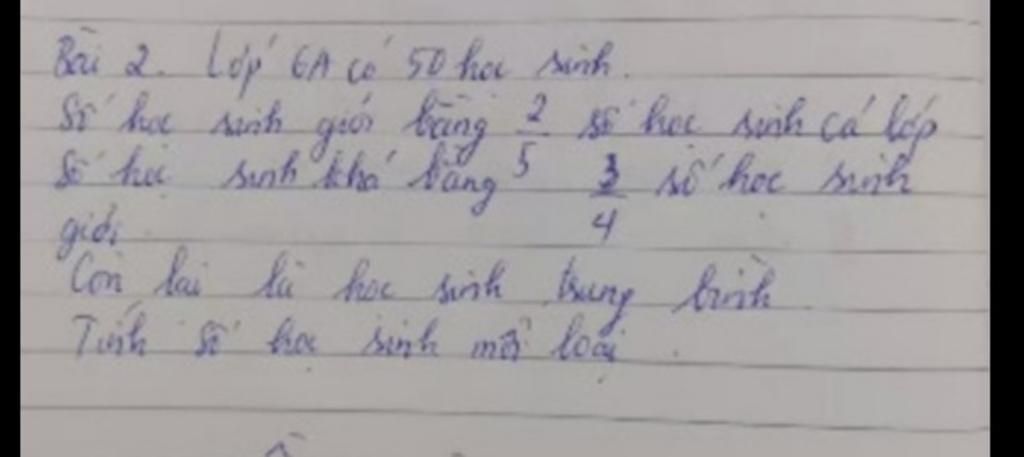 Bài 2. Lớp 6A có 50 học sinh.
Số học sinh giỏi bằng 2/5 số học sinh cả lớp
Số học sinh khá bằng 3/4 số học sinh
giỏi.
Còn lại là học sinh trung bình
Tính số học sinh mỗi loại.